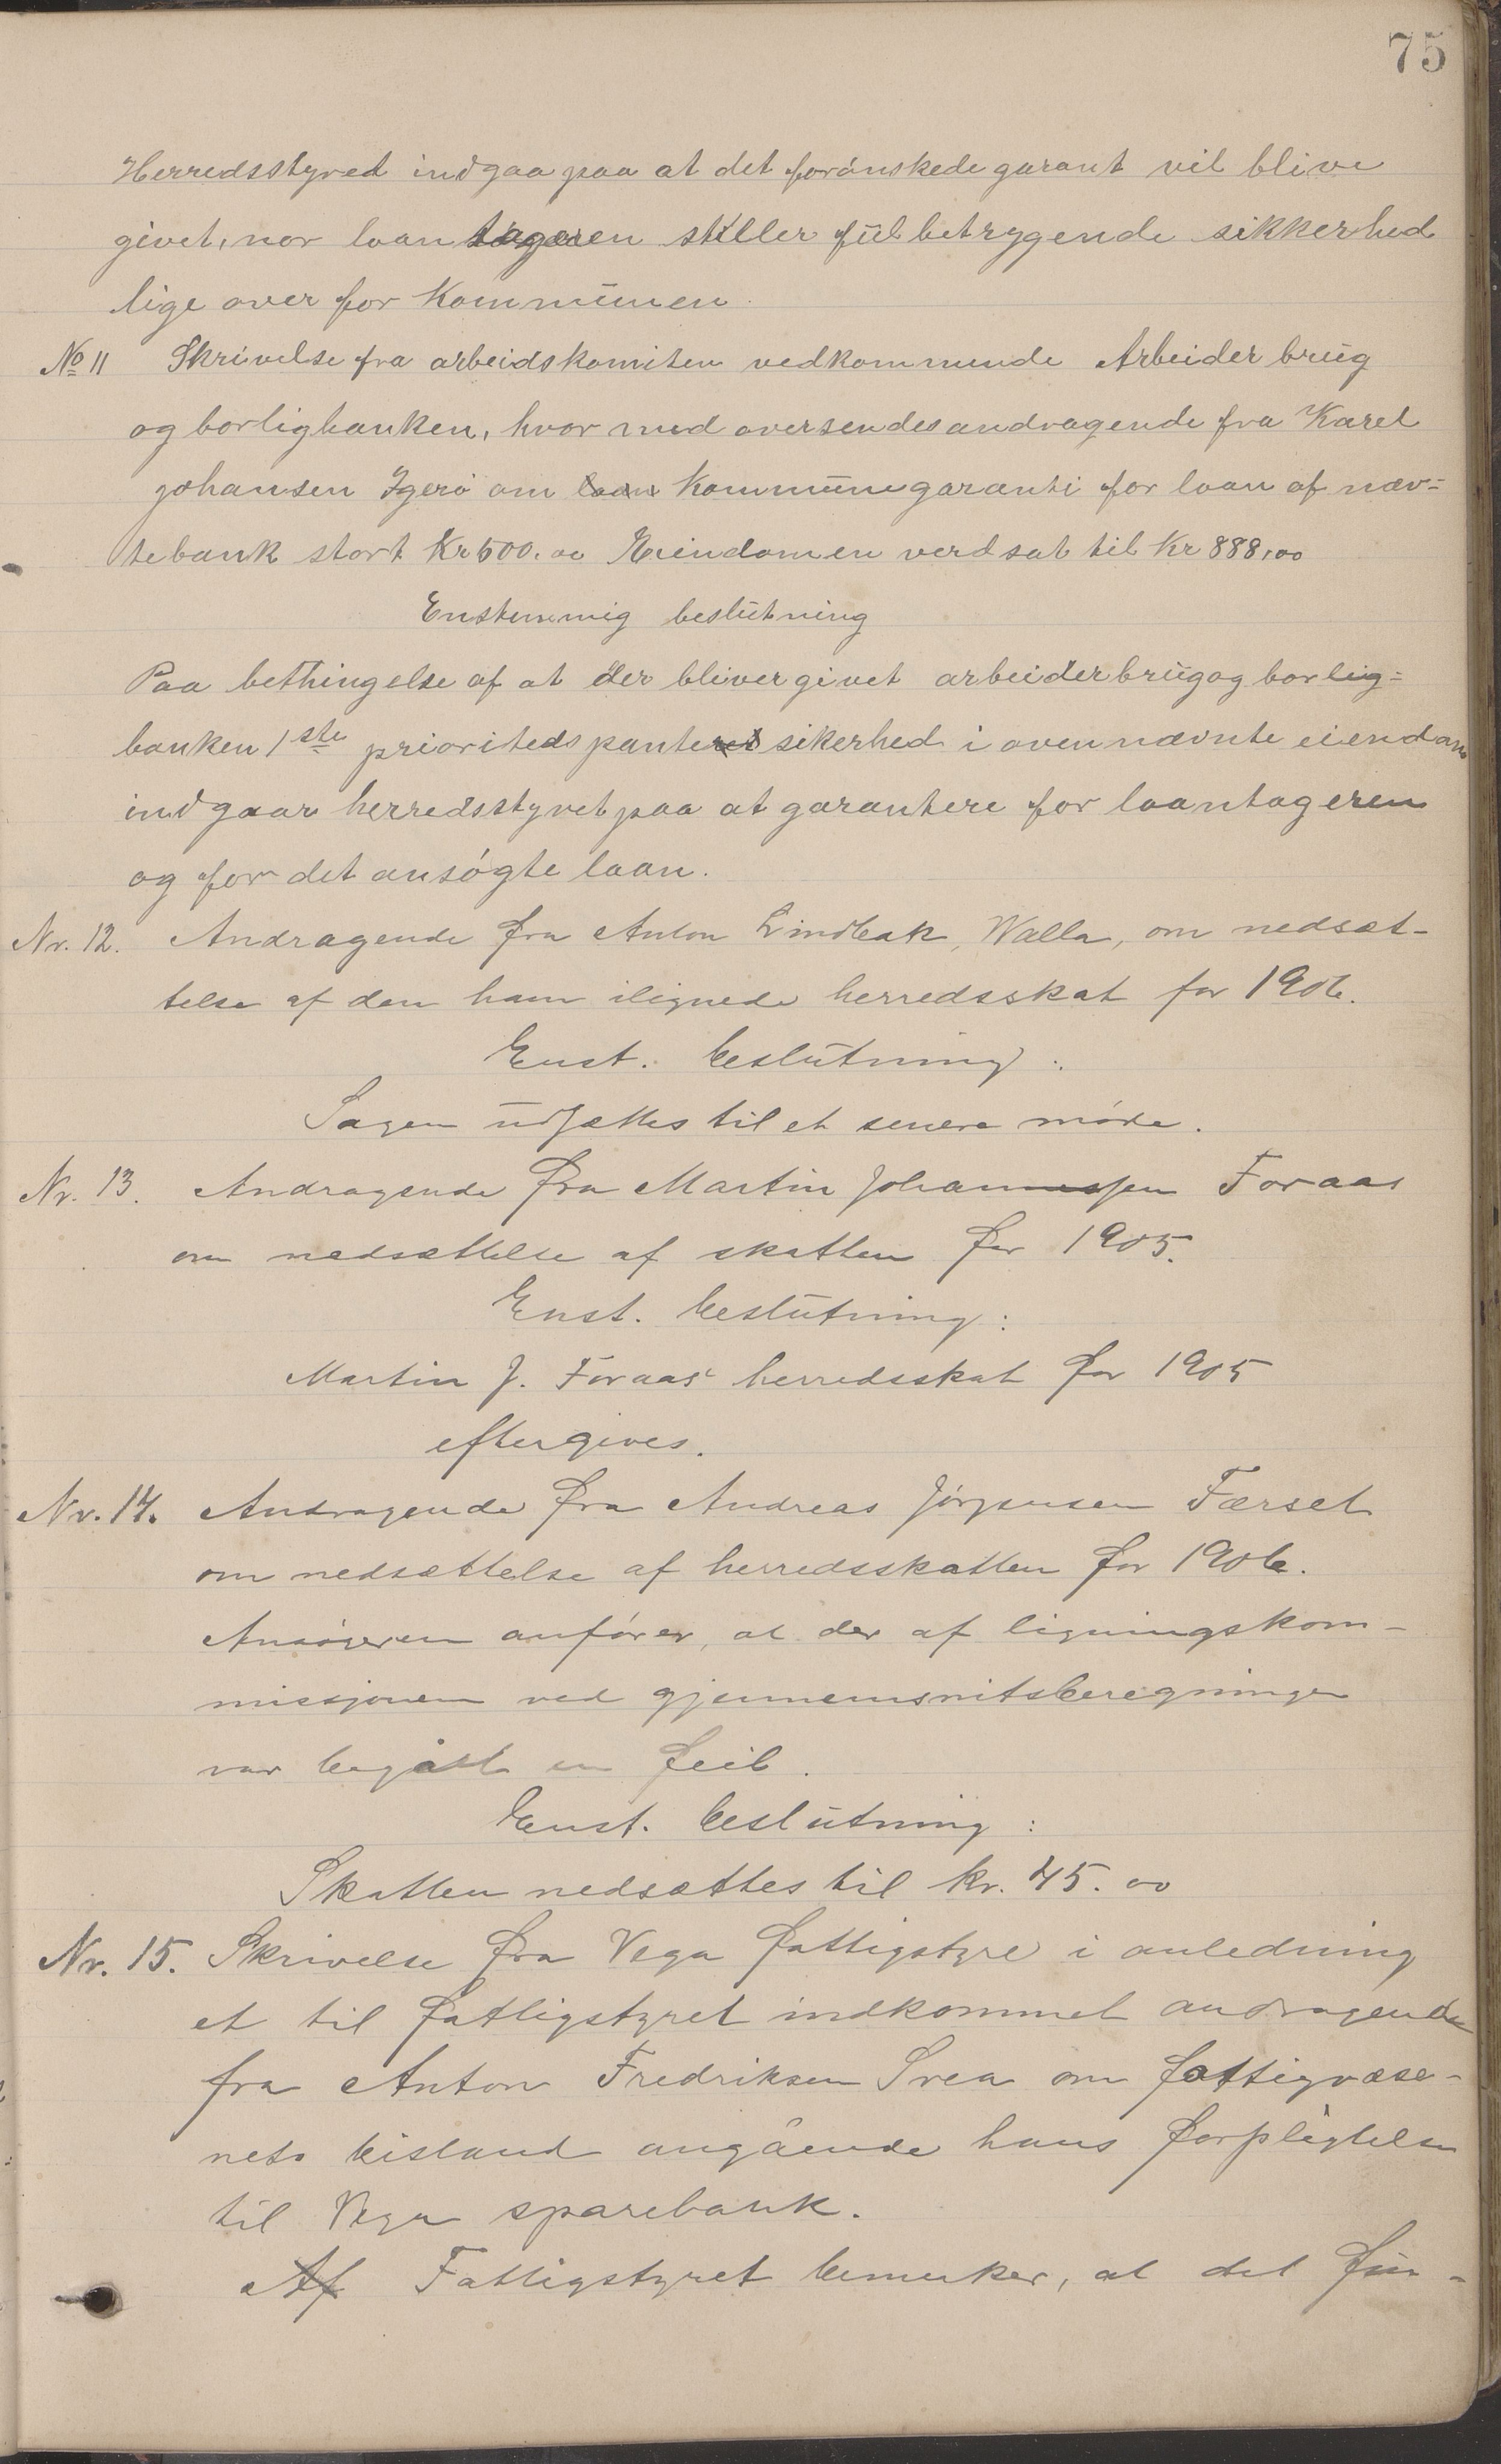 75
Herredsstyret indgaa paa at det forönskede garant vil blive
givet, nor loantageren stiller fūlbetrygende sikkerhed
lige over for Kommūnen.
No 11 Skrivelse fra arbeidskomiten vedkommende Arbeider brūg
og borligbanken, hvor med oversendes andragende fra Karel
johansen Igerö om loan Kommūnegaranti for loan af næv=
tebank stort Kr 500.00 Eeindomen verdsat til Kr 888,00
Enstemmig beslūtning
Paa bethingelse af at der bliver givet arbeiderbrūg og borlig=
banken 1ste prioriteds panteret sikerhed i ovennævnte eiendom
indgaar herredsstyret paa at garantere for loantageren
og for det ansögte loan.
Nr. 12. Andragende fra Anton Lindbak, Walla, om nedsæt-
telse af den ham ilignede herredsskat for 1906.
Enst. beslūtning:
Sagen ūdsættes til et senere möde.
Nr. 13. Andragende fra Martin Johannessen Foraas
om nedsættelse af skatten for 1905.
Enst. beslūtning:
Martin J. Foraas' herredsskat for 1905
eftergives.
Nr. 14. Andragende fra Andreas Jörgensen Færset
om nedsættelse af herredsskatten for 1906.
Ansögeren anförer, at der af ligningskom-
missjonen ved gjennemsnitsberegningen
var begått en feil.
Enst. beslūtning:
Skatten nedsættes til kr. 45.00
Nr. 15. Skrivelse fra Vega fattigstyre i anledning
et til fattigstyret indkommet andragende
fra Anton Fredriksen Svea om fattigvæse-
nets bistand angående hans forpligtelse
til Vega sparebank.
Af Fattigstyret bemerker, at det fin-